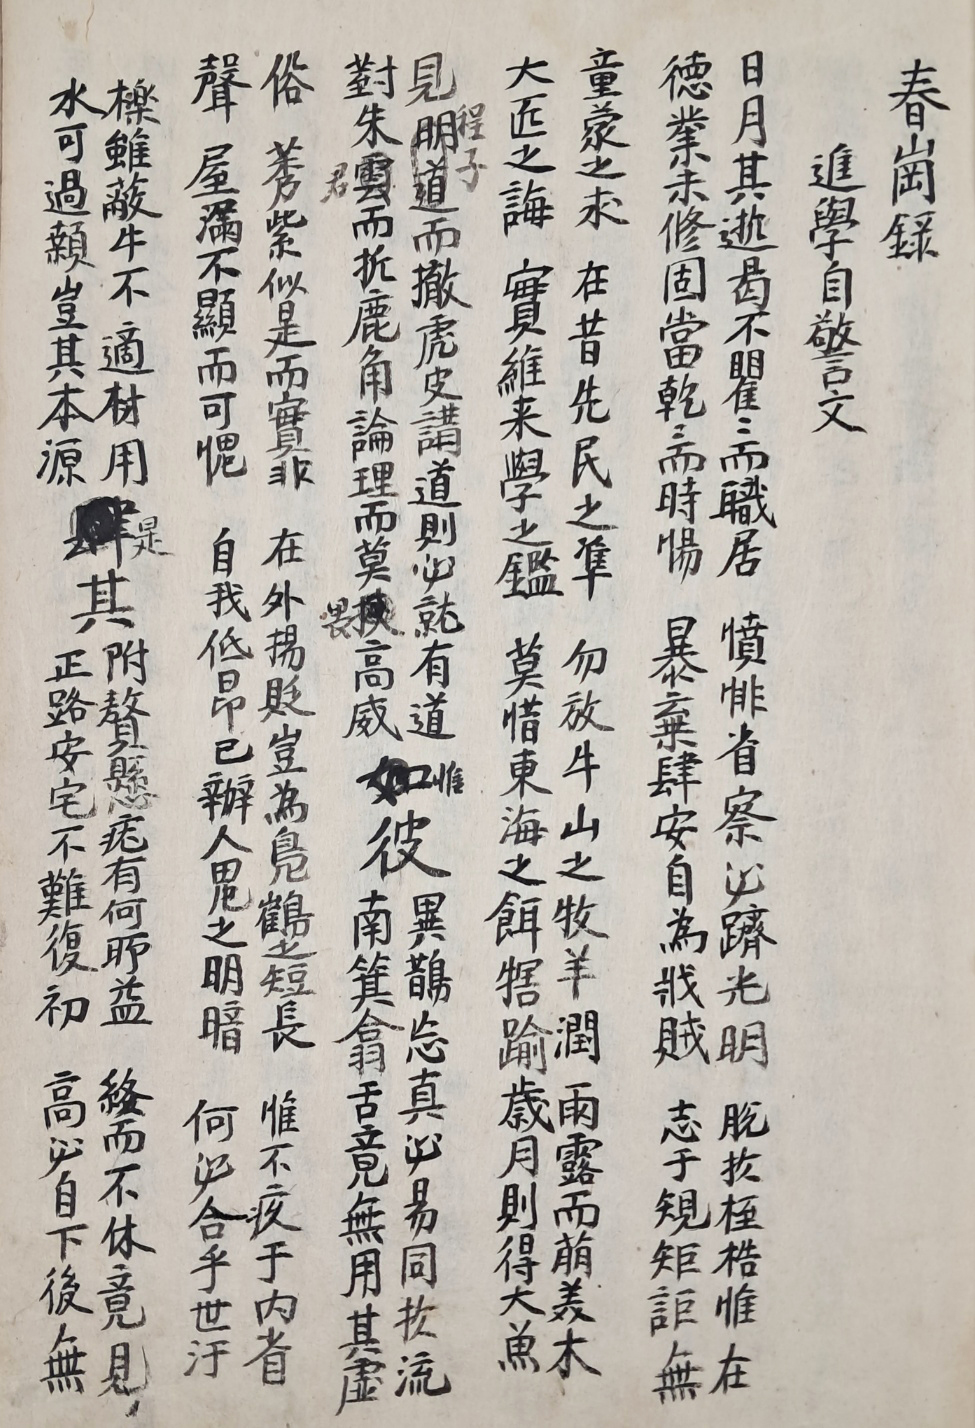 春崗錄
進學自警文
日月其逝曷不瞿〻而職居 憤悱省察必躋光明 脫於桎梏惟在
德業未修固當乾〻而時惕 暴棄肆安自為戕賊 志于規矩詎無
童蒙之求 在昔先民之準 勿放牛山之牧羊潤雨露而萌美木
大匠之誨 實維来學之鑑 莫惜東海之餌犗踰歲月則得大魚
見明道而撤虎皮講道則必就有道
程子
對朱雲而折鹿角論理而莫挾高威
君
畏
如彼
惟
異鵲忘真必易同於流
南箕翕舌竟無用其虛
俗 莠紫似是而實非 在外揚貶豈為鳧鶴之短長 惟不疚于内省
聲 屋漏不顯而可愧 自我低昂已辦人鬼之明暗 何必合乎世汙
櫟雖蔽牛不適材用
水可過顙豈其本源
肆其
是
附贅懸疣有何所益 終而不休竟見
正路安宅不難復初 高必自下後無